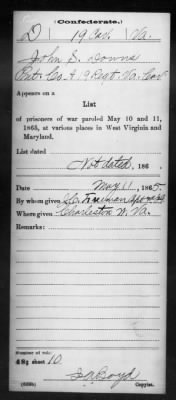 (Confederate.)
D 19 Cav. Va.
John S. Downs
Pvt. Co. A 19 Regt. Va. Cav
Appears on a
List
of prisoners of war paroled May 10 and 11,
1865, at various places in West Virginia and
Maryland.
List dated
Not dated, 186 .
Date May 11, 1865.
By whom given
Where given Charleston W. Va.
Remarks:
Number of roll:
sheet 10
Boyd
(639b) Copyist.